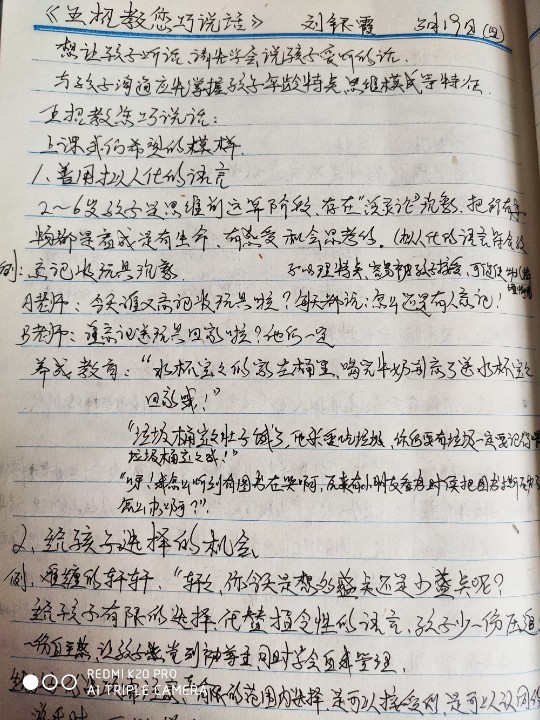 《五招教您巧说话》 刘银霞 3月19日(四)
想让孩子听话,请先学会说孩子爱听的话.
与孩子沟通应先掌握孩子年龄特点、思维模式等特征.
五招教您巧说话:
上课我们希望的模样.
1、善用拟人化的语言
2~6岁孩子是思维的这年阶段,存在"泛灵论"现象,把所有事
物都是看成是有生命、有感受和会思考的.(拟人化的语言符合孩
例:忘记收玩具现象 子心理特点,容易被孩子接受,可促使
A老师:今天谁又忘记收玩具啦?每天都说:怎么还是有人忘记!
B老师:谁忘记送玩具回家啦?他们一定
养成教育:"水杯宝宝的家在桶里,喝完牛奶别忘了送水杯宝宝
回家哦!"
"垃圾桶宝宝肚子饿了,他最爱吃垃圾,你们要有垃圾一定要记得喂
垃圾桶宝宝哦!"
"呀!我怎么听到有图书在哭啊,原来有小朋友看书时候把图书
怎么办啊?"
2、给孩子选择的机会
例,难缠的轩轩,"轩轩,你今天是想多盛点还是少盛点呢?
给孩子有限的选择,代替指令性的语言,孩子少一份压迫
一份自主,让孩子感觉到被尊重同时学会自我管理.
有限的范围内选择,是可以接受到,是可以认同的
REDMI K20 PRO
AI TRIPLE CAMERA